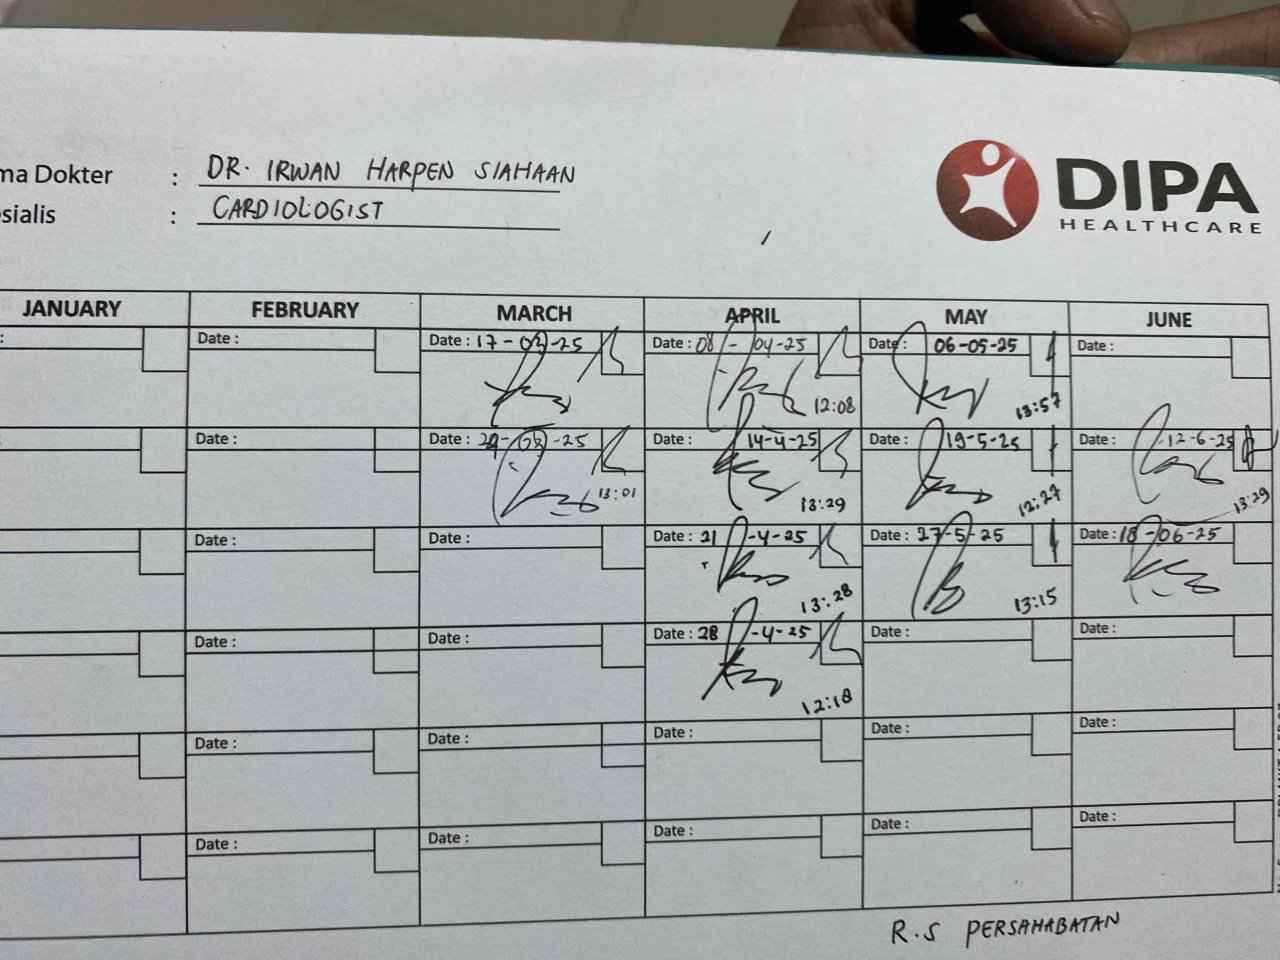 ma Dokter : DR. IRWAN HARPEN SIAHAAN
sialis : CARDIOLOGIST
DIPA
HEALTHCARE
JANUARY FEBRUARY MARCH APRIL MAY JUNE
: Date : Date : 17-03-25 Date : 08-04-25 Date : 06-05-25 Date :
12:08 13:57
: Date : Date : 24-03-25 Date : 14-4-25 Date : 19-5-25 Date : 12-6-25
13:01 13:29 12:27 13:29
Date : Date : Date : 21-4-25 Date : 27-5-25 Date : 18-06-25
13:28 13:15
Date : Date : Date : 28-4-25 Date : Date :
12:18
Date : Date : Date : Date : Date :
Date : Date : Date : Date : Date :
R.S PERSAHABATAN